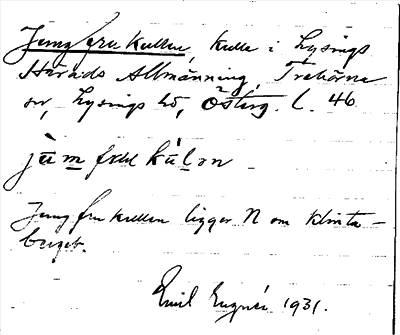 Jungfrukullen, kulle i Lysings
Härads Allmänning, Trehörna
sn, Lysings hd, Östg. L. 46
Jungfrukullen ligger N om Klinta-
berget.
Emil 1931.